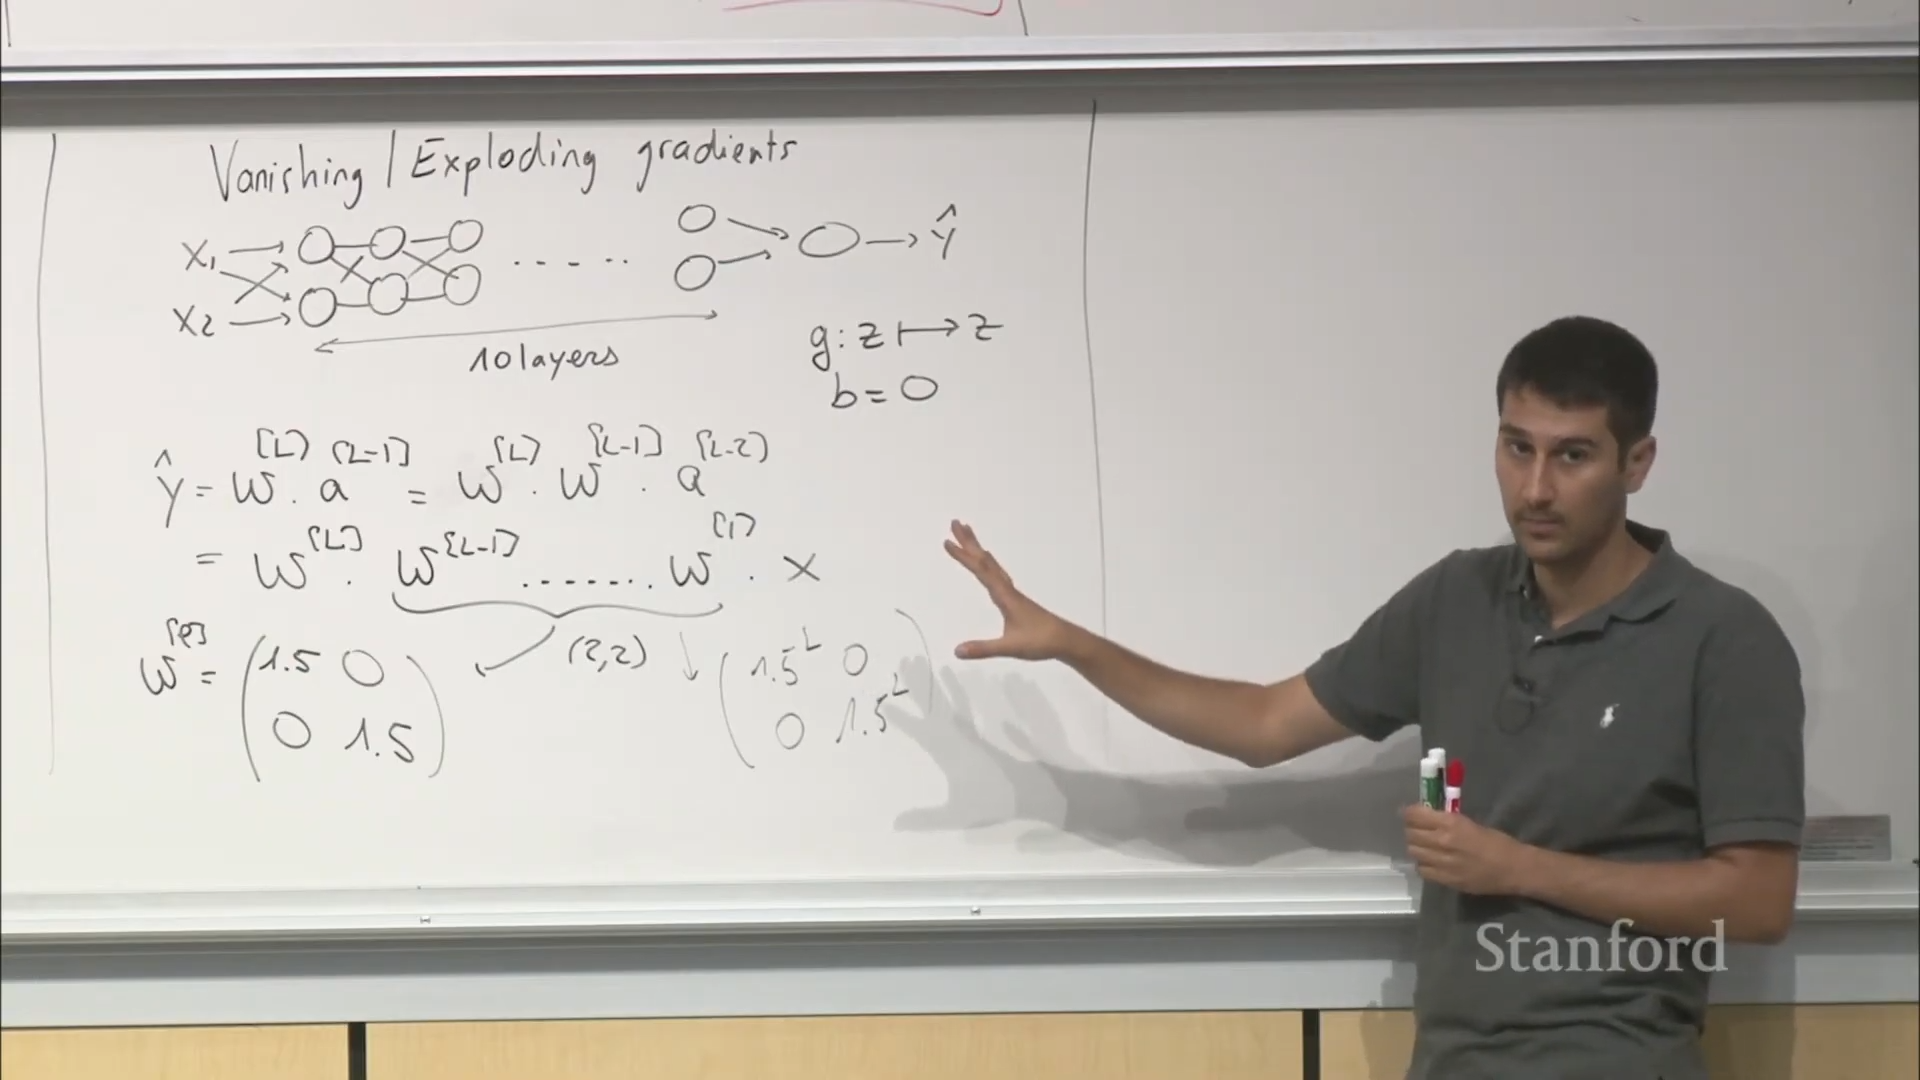 Vanishing / Exploding gradients
x₁
x₂
. . - . . .
ŷ
10 layers
g: z ↦ z
b = 0
ŷ = W^[L] . a^[L-1] = W^[L] . W^[L-1] . a^[L-2]
= W^[L] . W^[L-1] ....... W^[1] . x
(2,2)
W^[l] = (1.5 0
0 1.5)
(1.5^L 0
0 1.5^L)
Stanford